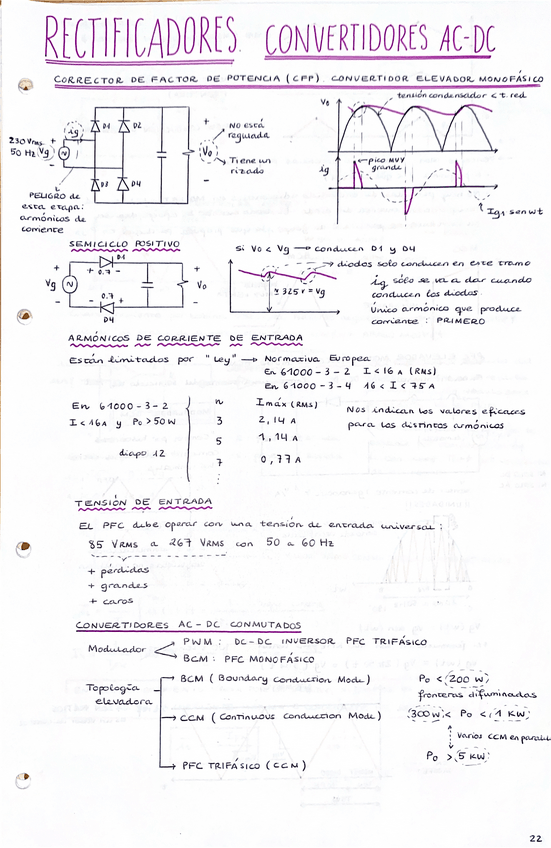 RECTIFICADORES. CONVERTIDORES AC-DC
CORRECTOR DE FACTOR DE POTENCIA (CFP). CONVERTIDOR ELEVADOR MONOFÁSICO
tensión condensador < t. red
Vo
ig
D1 D2
D3 D4
+
-
Vo
No está
regulada
Tiene un
rizado
230 Vrms
50 Hz Vg
PELIGRO de
esta etapa:
armónicos de
corriente
ig
pico MUY
grande
Ig1 sen wt
SEMICICLO POSITIVO
D1
+ 0.7 -
Vg
0.7
- +
D4
+
Vo
-
Si Vo < Vg → conducen D1 y D4
diodos solo conducen en este tramo
≃ 325 V = Vg
ig sólo se va a dar cuando
conducen los diodos.
Único armónico que produce
corriente: PRIMERO
ARMÓNICOS DE CORRIENTE DE ENTRADA
Están limitados por "Ley" → Normativa Europea
En 61000-3-2 I < 16 A (RMS)
En 61000-3-4 16 < I < 75 A
En 61000-3-2
I < 16A y Po > 50 W
diapo 12
n Imáx (RMS)
3 2,14 A
5 1,14 A
7 0,77 A
⋮
Nos indican los valores eficaces
para los distintos armónicos
TENSIÓN DE ENTRADA
EL PFC debe operar con una tensión de entrada universal:
85 VRMS a 267 VRMS con 50 a 60 Hz
+ pérdidas
+ grandes
+ caros
CONVERTIDORES AC-DC CONMUTADOS
Modulador
PWM: DC-DC INVERSOR PFC TRIFÁSICO
BCM: PFC MONOFÁSICO
Topología
elevadora
BCM (Boundary Conduction Mode) Po < 200 W
fronteras difuminadas
CCM (Continuous Conduction Mode) 300 W < Po < 1 KW
varios CCM en paralelo
Po > 5 KW
PFC TRIFÁSICO (CCM)
22